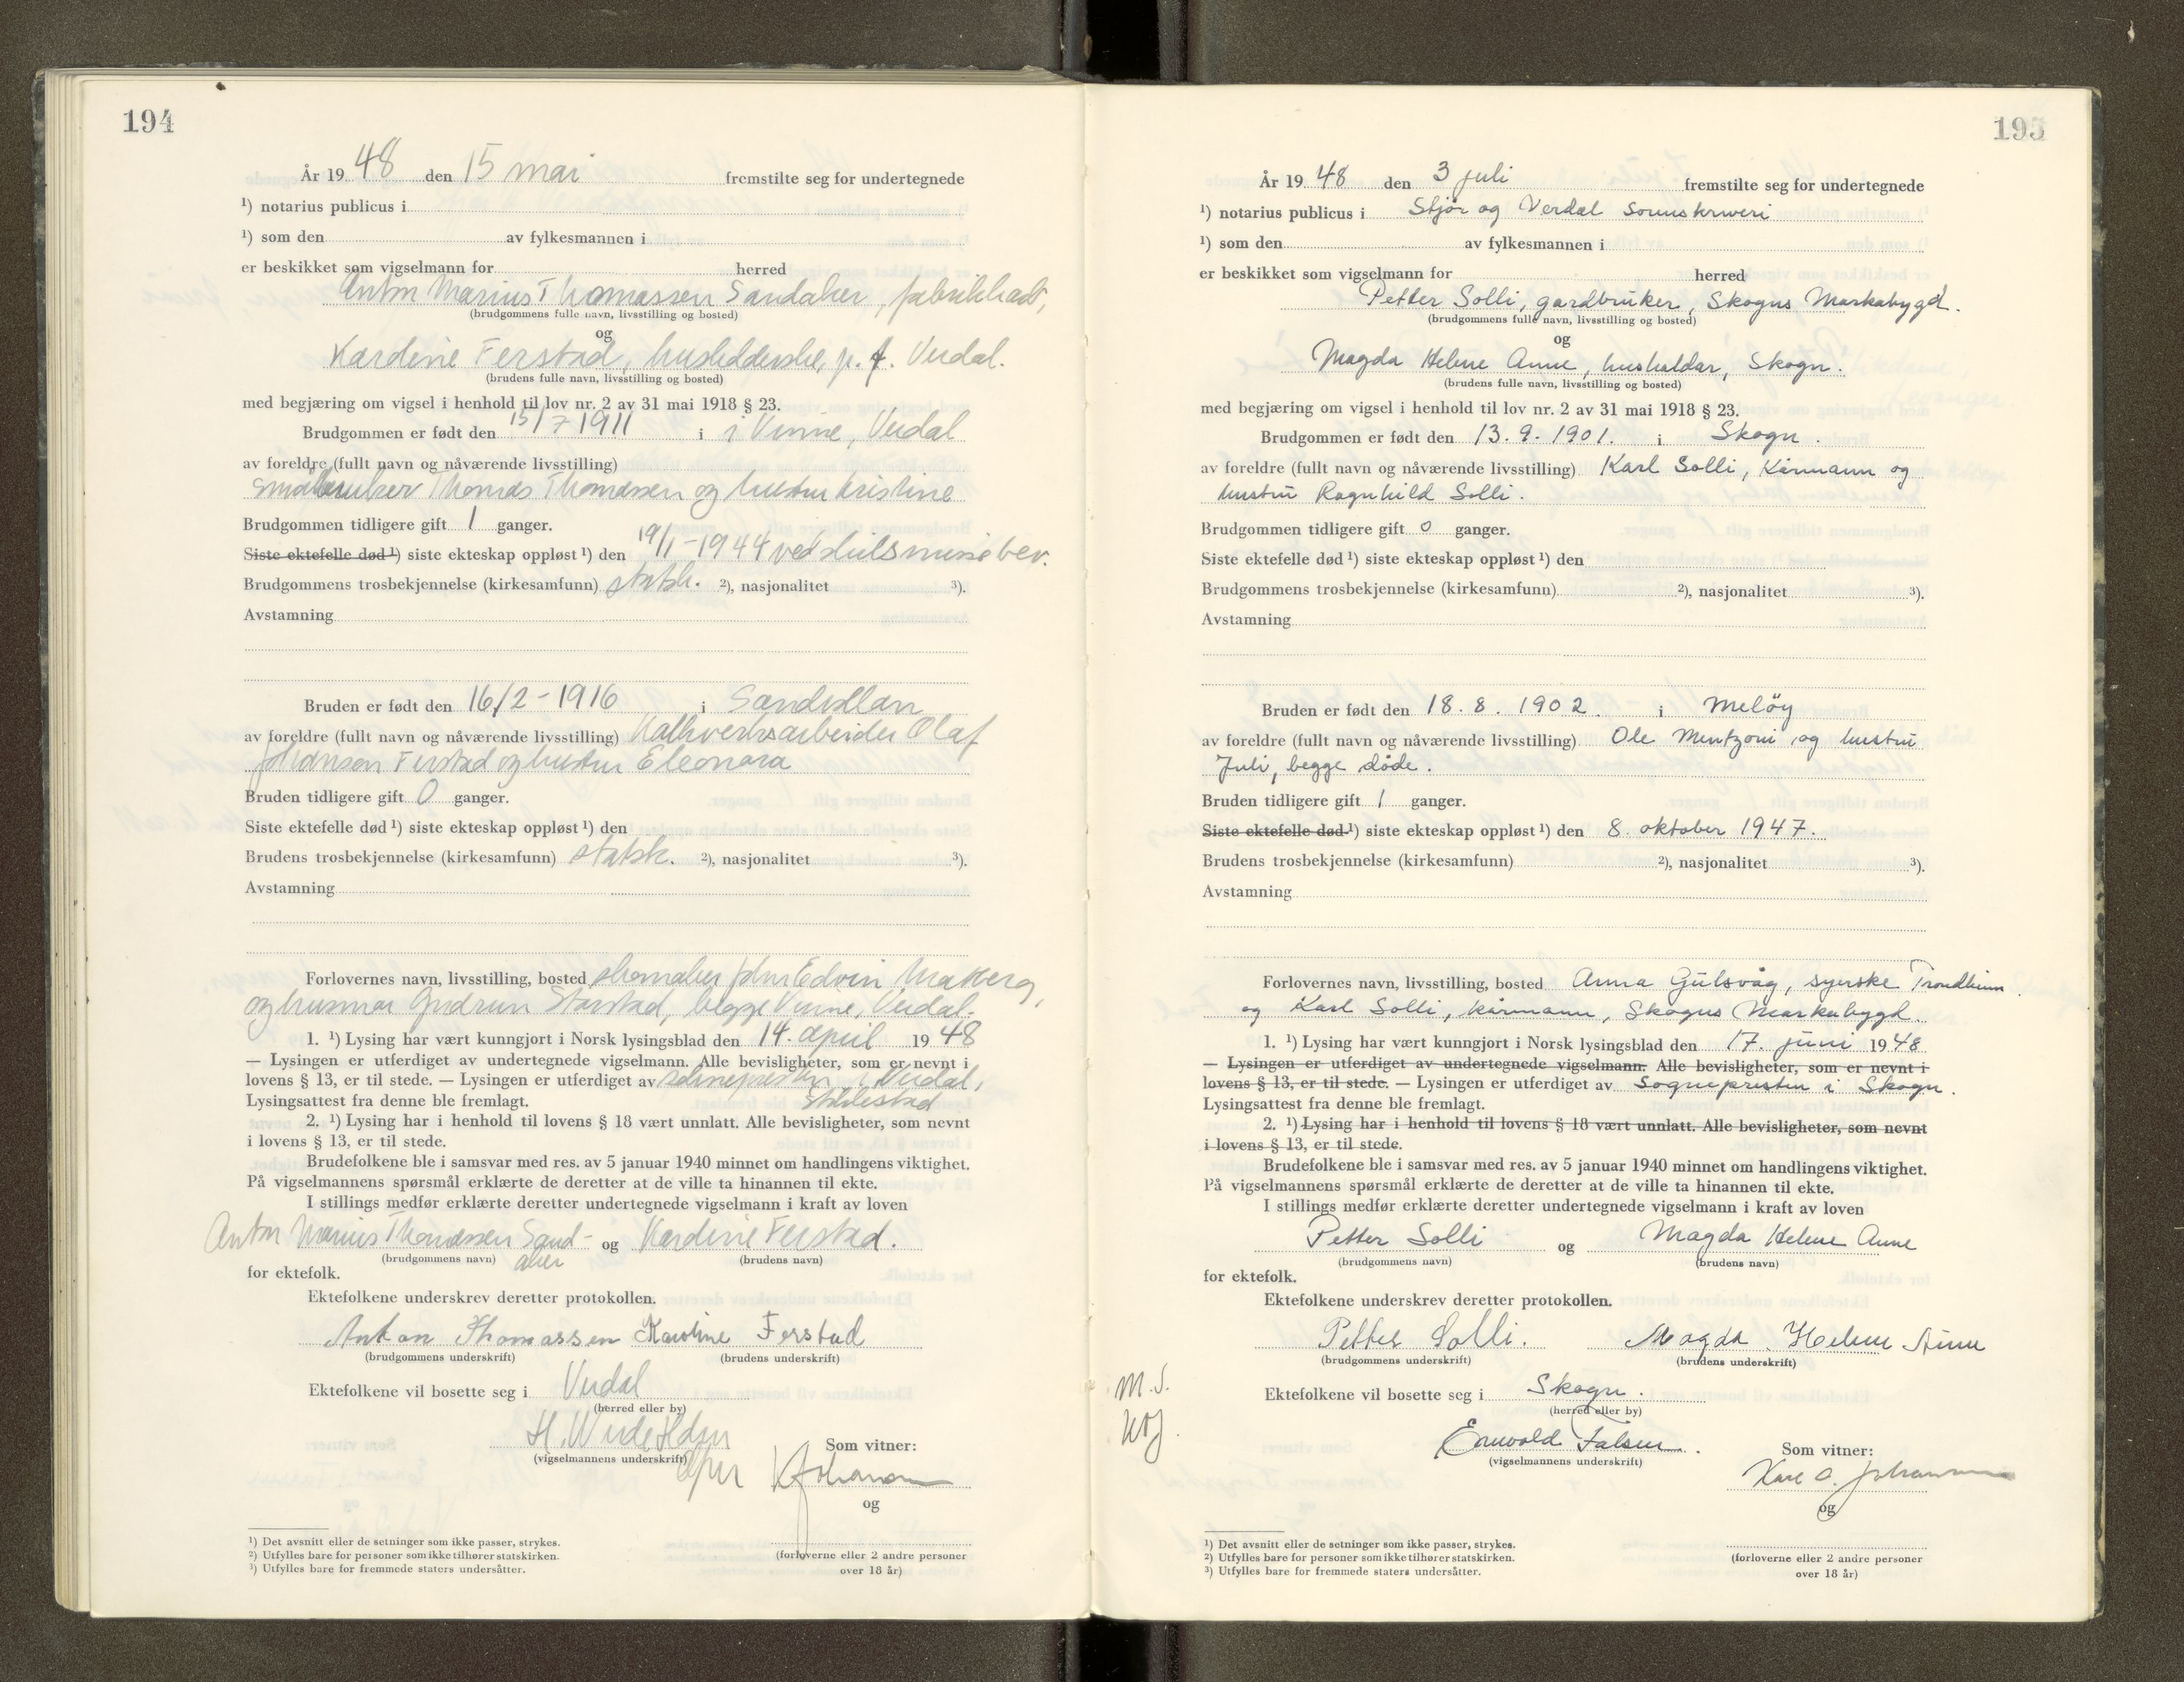 194
År 19 48 den 15 mai fremstilte seg for undertegnede
¹) notarius publicus i
¹) som den av fylkesmannen i
er beskikket som vigselmann for herred
Anton Marius Thomassen Sandaker,
(brudgommens fulle navn, livsstilling og bosted)
og
Karoline Ferstad, p. t. Verdal.
(brudens fulle navn, livsstilling og bosted)
med begjæring om vigsel i henhold til lov nr. 2 av 31 mai 1918 § 23.
Brudgommen er født den 15/7 1911 i i Vinne, Verdal
av foreldre (fullt navn og nåværende livsstilling)
småbruker Thomas Thomassen og hustru Kristine
Brudgommen tidligere gift 1 ganger.
Siste ektefelle død ¹) siste ekteskap oppløst ¹) den 19/1-1944 ved
Brudgommens trosbekjennelse (kirkesamfunn) statsk. ²), nasjonalitet ³).
Avstamning
Bruden er født den 16/2-1916 i Sandvollan
av foreldre (fullt navn og nåværende livsstilling) Kalkverksarbeider Olaf
Johansen Ferstad og hustru Eleonora
Bruden tidligere gift 0 ganger.
Siste ektefelle død ¹) siste ekteskap oppløst ¹) den
Brudens trosbekjennelse (kirkesamfunn) statsk. ²), nasjonalitet ³).
Avstamning
Forlovernes navn, livsstilling, bosted skomaker John Edvin
og husmor Gudrun begge Vinne, Verdal.
1. ¹) Lysing har vært kunngjort i Norsk lysingsblad den 14. april 19 48
— Lysingen er utferdiget av undertegnede vigselmann. Alle bevisligheter, som er nevnt i
lovens § 13, er til stede. — Lysingen er utferdiget av soknepresten i Verdal,
Lysingsattest fra denne ble fremlagt. Stiklestad
2. ¹) Lysing har i henhold til lovens § 18 vært unnlatt. Alle bevisligheter, som nevnt
i lovens § 13, er til stede.
Brudefolkene ble i samsvar med res. av 5 januar 1940 minnet om handlingens viktighet.
På vigselmannens spørsmål erklærte de deretter at de ville ta hinannen til ekte.
I stillings medfør erklærte deretter undertegnede vigselmann i kraft av loven
Anton Marius Thomassen Sand- og Karoline Ferstad.
(brudgommens navn) aker (brudens navn)
for ektefolk.
Ektefolkene underskrev deretter protokollen.
Anton Thomassen Karoline Ferstad
(brudgommens underskrift) (brudens underskrift)
Ektefolkene vil bosette seg i Verdal
(herred eller by)
Som vitner:
(vigselmannens underskrift)
og
¹) Det avsnitt eller de setninger som ikke passer, strykes.
²) Utfylles bare for personer som ikke tilhører statskirken.
³) Utfylles bare for fremmede staters undersåtter.
(forloverne eller 2 andre personer
over 18 år)
195
År 19 48 den 3 juli fremstilte seg for undertegnede
¹) notarius publicus i Stjør og Verdal Sorenskriveri
¹) som den av fylkesmannen i
er beskikket som vigselmann for herred
Petter Solli, gardbruker, Skogns Markabygd.
(brudgommens fulle navn, livsstilling og bosted)
og
Magda Helene Anne, husholdar, Skogn.
(brudens fulle navn, livsstilling og bosted)
med begjæring om vigsel i henhold til lov nr. 2 av 31 mai 1918 § 23.
Brudgommen er født den 13.9.1901. i Skogn.
av foreldre (fullt navn og nåværende livsstilling) Karl Solli, Kårmann og
hustru Ragnhild Solli.
Brudgommen tidligere gift 0 ganger.
Siste ektefelle død ¹) siste ekteskap oppløst ¹) den
Brudgommens trosbekjennelse (kirkesamfunn) ²), nasjonalitet ³).
Avstamning
Bruden er født den 18. 8. 1902. i Meløy
av foreldre (fullt navn og nåværende livsstilling) Ole Mentzoni og hustru
Juli, begge døde.
Bruden tidligere gift 1 ganger.
Siste ektefelle død. ¹) siste ekteskap oppløst ¹) den 8. oktober 1947.
Brudens trosbekjennelse (kirkesamfunn) ²), nasjonalitet ³).
Avstamning
Forlovernes navn, livsstilling, bosted Anna Gulsvåg, syerske Trondheim
og Karl Solli, kårmann, Skogns Markabygd.
1. ¹) Lysing har vært kunngjort i Norsk lysingsblad den 17. juni 19 48
— Lysingen er utferdiget av undertegnede vigselmann. Alle bevisligheter, som er nevnt i
lovens § 13, er til stede. — Lysingen er utferdiget av Sognepresten i Skogn.
Lysingsattest fra denne ble fremlagt.
2. ¹) Lysing har i henhold til lovens § 18 vært unnlatt. Alle bevisligheter, som nevnt
i lovens § 13, er til stede.
Brudefolkene ble i samsvar med res. av 5 januar 1940 minnet om handlingens viktighet.
På vigselmannens spørsmål erklærte de deretter at de ville ta hinannen til ekte.
I stillings medfør erklærte deretter undertegnede vigselmann i kraft av loven
Petter Solli og Magda Helene Anne
(brudgommens navn) (brudens navn)
for ektefolk.
Ektefolkene underskrev deretter protokollen.
Petter Solli. Magda Helene Anne
(brudgommens underskrift) (brudens underskrift)
M.S. Ektefolkene vil bosette seg i Skogn.
(herred eller by)
Falsen. Som vitner:
(vigselmannens underskrift)
Kåre O. Johansen
og
¹) Det avsnitt eller de setninger som ikke passer, strykes.
²) Utfylles bare for personer som ikke tilhører statskirken.
³) Utfylles bare for fremmede staters undersåtter.
(forloverne eller 2 andre personer
over 18 år)